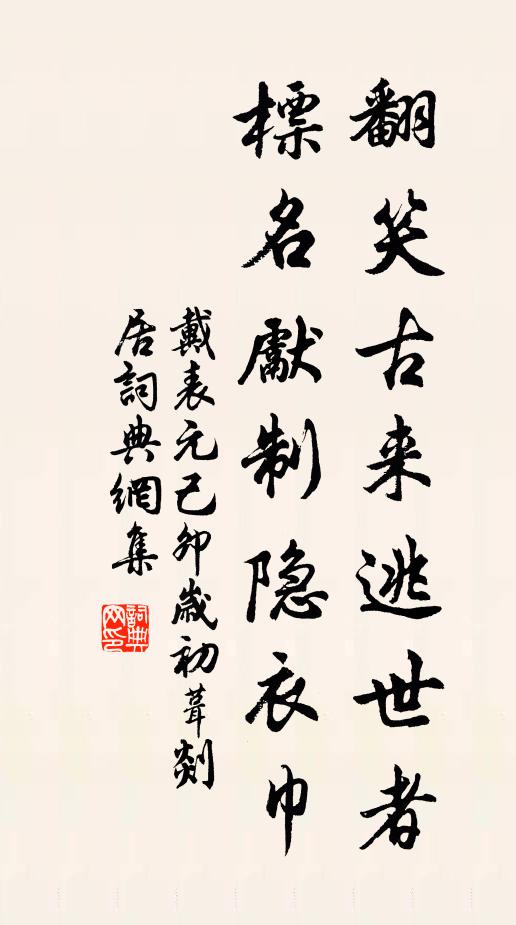 翻笑古来逃世者
標名獻制隐衣巾
戴表元己卯歲初葺剡
居詞典網集
詞典
网印